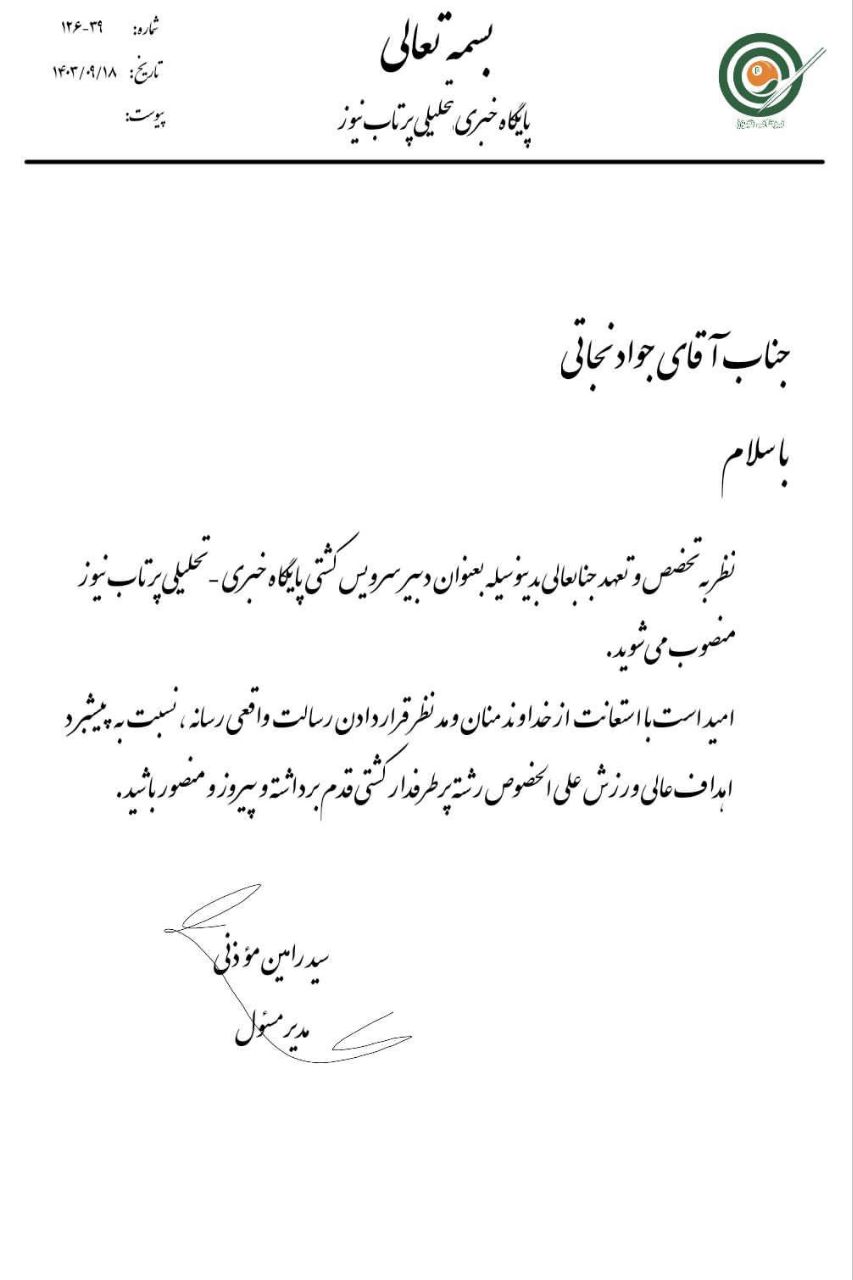 بسمه تعالی
پایگاه خبری تحلیلی پرتاب نیوز
شماره: ۳۹-۱۲۶
تاریخ: ۱۴۰۳/۰۹/۱۸
پیوست:
جناب آقای جواد نجاتی
با سلام
نظر به تخصص و تعهد جنابعالی بدینوسیله بعنوان دبیر سرویس کشتی پایگاه خبری - تحلیلی پرتاب نیوز
منصوب می شوید.
امید است با استعانت از خداوند منان و مد نظر قرار دادن رسالت واقعی رسانه ، نسبت به پیشبرد
اهداف عالی ورزش علی الخصوص رشته پرطرفدار کشتی قدم برداشته و پیروز و منصور باشید.
سید رامین مؤذنی
مدیر مسئول